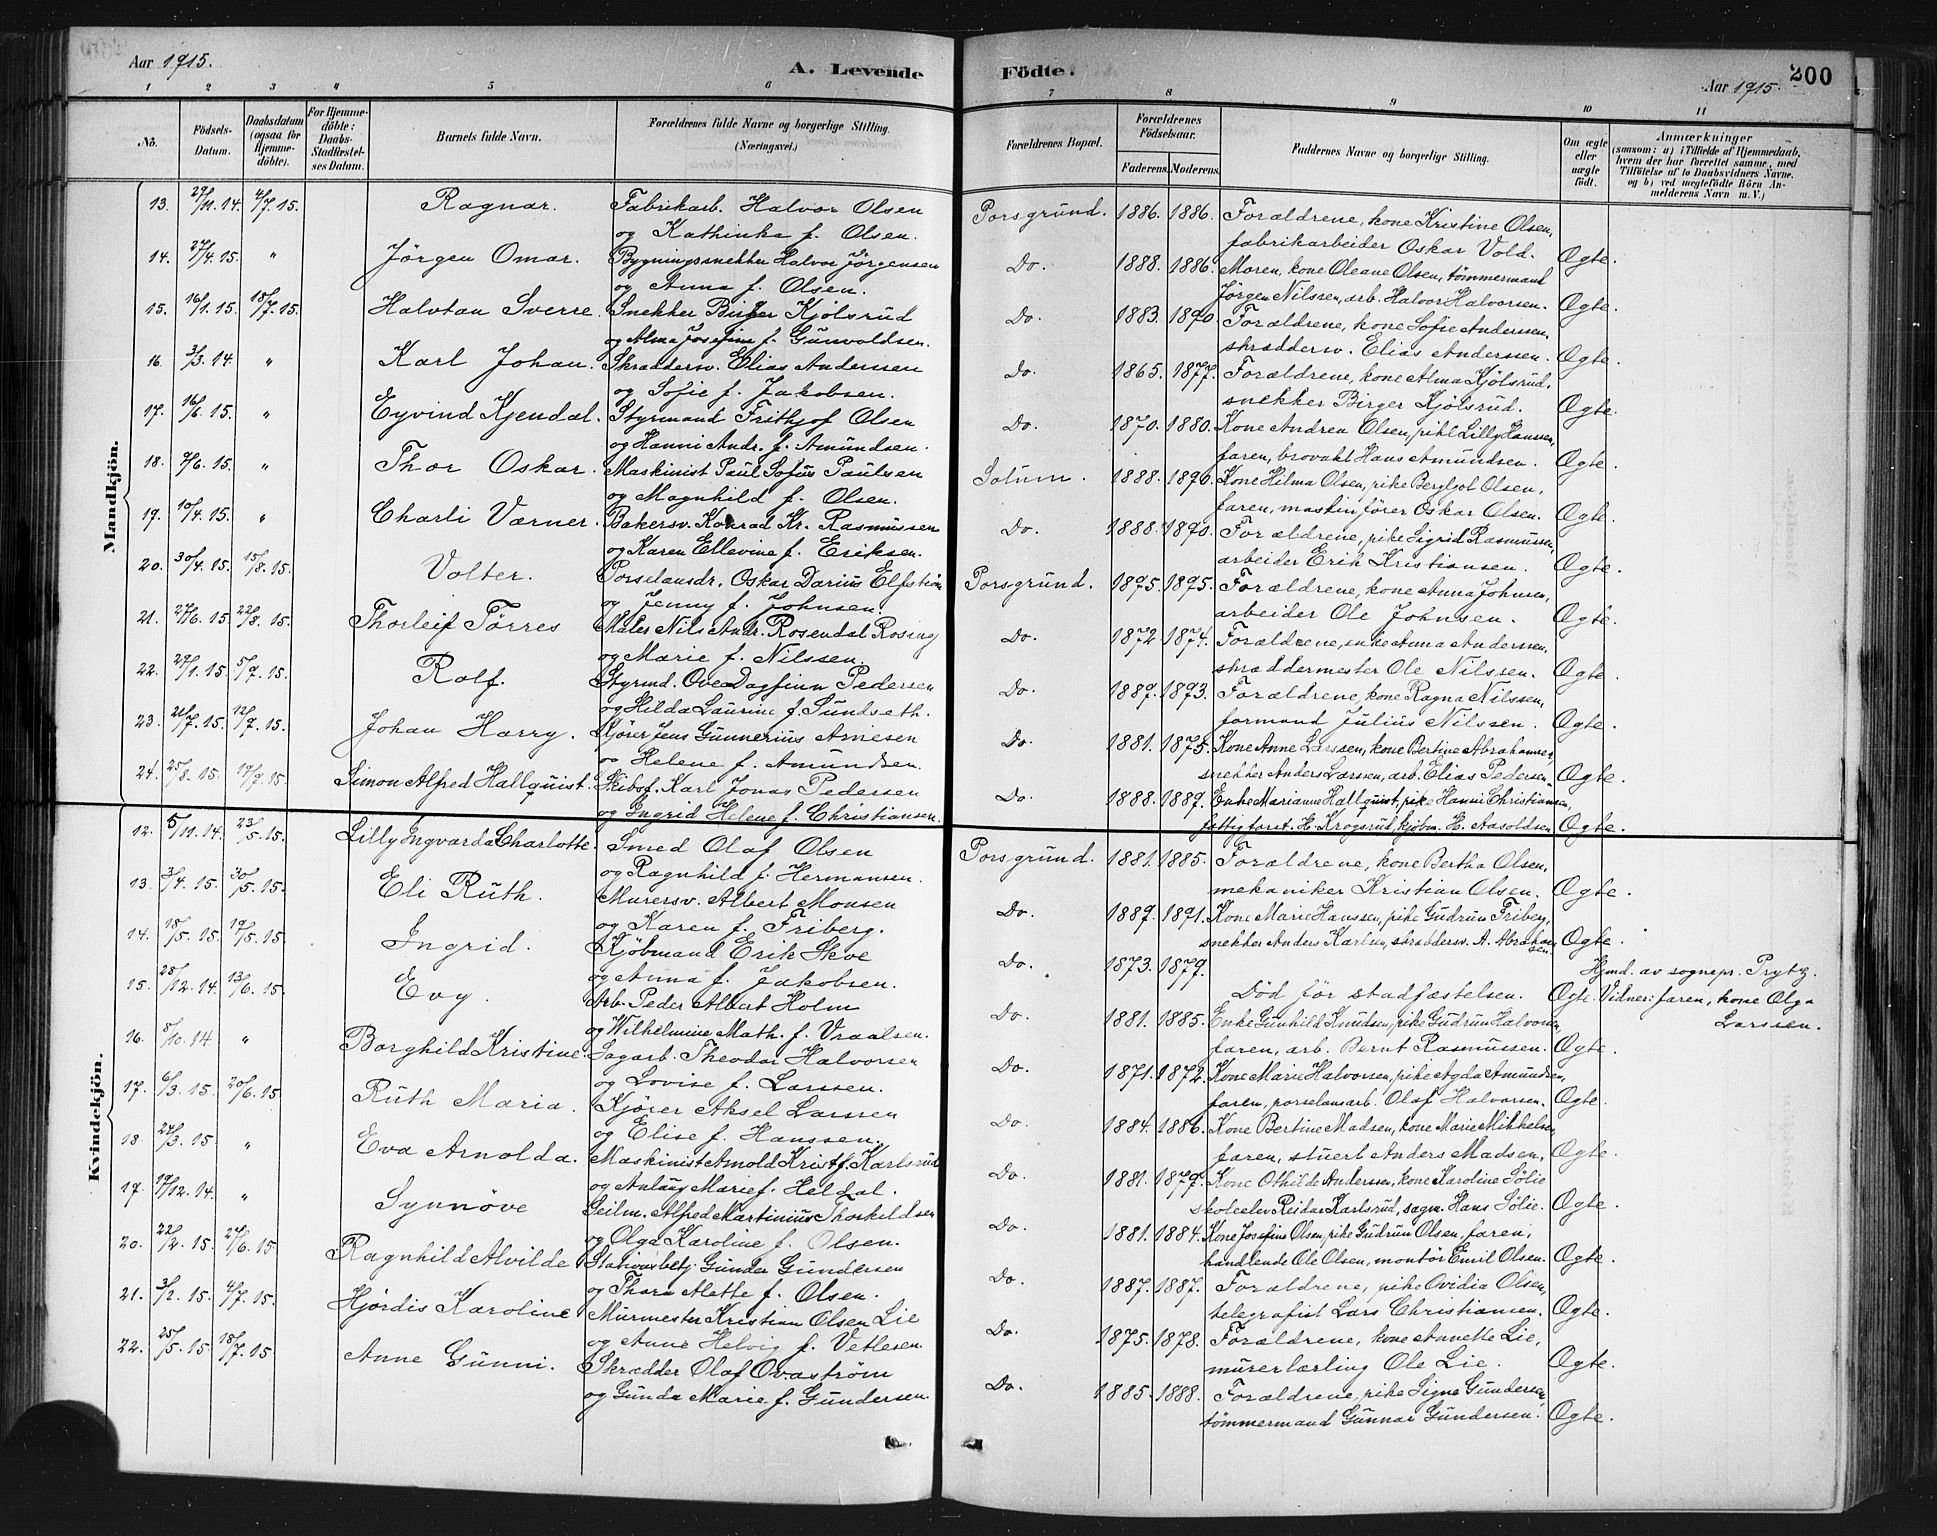 Aar 1915.
A. Levende Födte.
Aar 1915.
200
1 2 3 4 5 6 7 8 9 10 11
No.
Födsels-Datum.
Daabsdatum (ogsaa for Hjemme-döbte).
For Hjemme-döbte: Daabs-Stadfæstel-ses Datum.
Barnets fulde Navn.
Forældrenes fulde Navne og borgerlige Stilling.
(Næringsvei.)
Forældrenes Bopæl.
Forældrenes Födselsaar.
Faderens. Moderens.
Faddernes Navne og borgerlige Stilling.
Om ægte eller uægte födt.
Anmærkninger
(saasom: a) i Tilfælde af Hjemmedaab,
hvem der har forrettet samme, med
Tilföielse af to Daabsvidners Navne.
og b) ved uægtefödte Börn An-
melderens Navn m. V.)
Mandkjön.
13. 29/11.14. 4/7.15. Ragnar. Fabrikarb. Halvor Olsen Porsgrund. 1886. 1886. Forældrene, kone Kristine Olsen,
og Kathinka f. Olsen. fabrikarbeider Oskar Vold. Ægte.
14. 27/4.15. " Jörgen Omar. Bygningssnekker Halvor Jörgensen Do. 1888. 1886. Moren, kone Oleane Olsen, tömmermand
og Anna f. Olsen. Jörgen Nilssen, arb. Halvor Halvorsen. Ægte.
15. 16/1.15. 18/7.15. Halvtan Sverre. Snekker Birger Kjölsrud Do. 1883. 1890. Forældrene, kone Sofie Anderssen,
og Alma Josefine f. Gunvoldsen. skræddersv. Elias Anderssen. Ægte.
16. 3/3.14. " Karl Johan. Skræddersv. Elias Anderssen Do. 1865. 1877. Forældrene, kone Alma Kjölsrud,
og Sofie f. Jakobsen. snekker Birger Kjölsrud. Ægte.
17. 16/6.15. " Eyvind Kjendal. Styrmand Frithjof Olsen Do. 1870. 1880. Kone Andrea Olsen, pike Lilly Hanssen,
og Hanni Andr. f. Amundsen. faren, brovakt Hans Amundsen. Ægte.
18. 7/6.15. " Thor Oskar. Maskinist Paul Sofus Paulsen Solum. 1888. 1890. Kone Hilma Olsen, pike Bergljot Olsen,
og Magnhild f. Olsen. faren, maskinförer Oskar Olsen. Ægte.
19. 10/4.15. " Charli Værner. Bakersv. Konrad Kr. Rasmussen Do. 1888. 1890. Forældrene, pike Sigrid Rasmussen,
og Karen Ellevine f. Eriksen. arbeider Erik Kristiansen. Ægte.
20. 30/4.15. 15/8.15. Volter. Porselansdr. Oskar Darius Elfström Porsgrund. 1895. 1895. Forældrene, kone Anna Johnsen,
og Jenny f. Johnsen. arbeider Ole Johnsen. Ægte.
21. 27/6.15. 22/8.15. Thorleif Törres Maler Nils Andr. Rosendal Rosing Do. 1872. 1874. Forældrene, enke Anna Anderssen,
og Marie f. Nilssen. skræddermester Ole Nilssen. Ægte.
22. 29/1.15. 5/9.15. Rolf. Styrmd. Ove Dagfinn Pedersen Do. 1889. 1893. Forældrene, kone Ragna Nilssen,
og Hilda Laurine f. Sundseth. formand Julius Nilssen. Ægte.
23. 21/7.15. 12/9.15. Johan Harry. Kjörer Jens Gunnerius Arnesen Do. 1881. 1875. Kone Anne Larssen, kone Bertine Abrahamsen,
og Helene f. Amundsen. snekker Anders Larssen, arb. Elias Pedersen. Ægte.
24. 25/8.15. 19/9.15. Simon Alfred Hallquist. Skibsf. Karl Jonas Pedersen Do. 1888. 1889. Enke Marianne Hallquist, pike Hanni Christiansen,
og Ingrid Helene f. Christiansen. fattigforst. H. Krogsrud, kjöbm. H. Aasoldsen. Ægte.
Kvindekjön.
12. 5/11.14. 23/5.15. Lilly Ingvarda Charlotte. Smed Olaf Olsen Porsgrund. 1881. 1885. Forældrene, kone Bertha Olsen,
og Ragnhild f. Hermansen. mekaniker Kristian Olsen. Ægte.
13. 3/4.15. 30/5.15. Eli Ruth. Murersv. Albert Monsen Do. 1889. 1891. Kone Marie Hanssen, pike Gudrun Friberg,
og Karen f. Friberg. snekker Anders Karlsen, skræddersv. A. Abrahamsen. Ægte.
14. 18/5.15. 19/5.15. Ingrid. Kjöbmand Erik Skve Do. 1873. 1879. Hjmd. av sognepr. Prytz.
og Anna f. Jakobsen. Död för stadfæstelsen. Ægte. Vidner: faren, kone Olga Larssen.
15. 28/12.14. 13/6.15. Evy. Arb. Peder Albert Holm Do. 1881. 1885. Enke Gunhild Knudsen, pike Gudrun Halvorsen,
og Wilhelmine Math. f. Vraalsen. faren, arb. Bernt Rasmussen. Ægte.
16. 8/10.14 " Borghild Kristine. Sagarb. Theodor Halvorsen Do. 1871. 1872. Kone Marie Halvorsen, pike Agda Amundsen,
og Lovise f. Larssen. faren, porselansarb. Olaf Halvorsen. Ægte.
17. 6/3.15. 20/6.15. Ruth Maria. Kjörer Aksel Larssen Do. 1884. 1886. Kone Bertine Madsen, kone Marie Mikkelsen,
og Elise f. Hanssen. faren, stuert Anders Madsen. Ægte.
18. 24/3.15 " Eva Arnolda. Maskinist Arnold Kristf. Karlsrud Do. 1881. 1879. Kone Othilde Anderssen, kone Karoline Sölie
og Aslaug Marie f. Heldal. skoleelev Reidar Karlsrud, sagm. Hans Sölie. Ægte.
19. 19/12.14. " Synnöve Seilm. Alfred Martinius Thorkildsen Do. 1881. 1884. Kone Josefine Olsen, pike Gudrun Olsen, faren,
og Olga Karoline f. Olsen. handlende Ole Olsen, montör Emil Olsen. Ægte.
20. 22/2.15. 27/6.15. Ragnhild Alvilde Stationsbetj. Gunder Gundersen Do. 1887. 1887. Forældrene, pike Ovidia Olsen,
og Thora Alette f. Olsen. telegrafist Lars Christiansen. Ægte.
21. 3/2.15. 4/7.15. Hjördis Karoline Murmester Kristian Olsen Lie Do. 1875. 1878. Forældrene, kone Annette Lie,
og Anne Helvig f. Vetlesen. murerlærling Ole Lie. Ægte.
22. 25/5.15. 18/7.15 Anne Gunni. Skrædder Olaf Ovaström Do. 1885. 1888. Forældrene, pike Signe Gundersen,
og Gunda Marie f. Gundersen. tömmermand Gunnar Gundersen. Ægte.